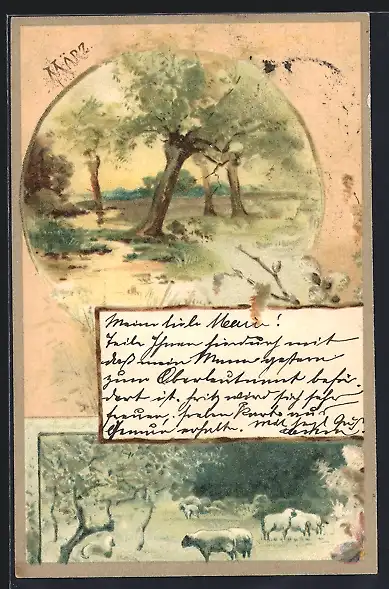 MÄRZ.
Meine liebe Marie!
Teile Ihnen hierdurch mit
daß mein Mann gestern
zum Oberleutnant beför-
dert ist. Fritz wird sich sehr
freuen, Karte aus
Genua erhalte. Mit